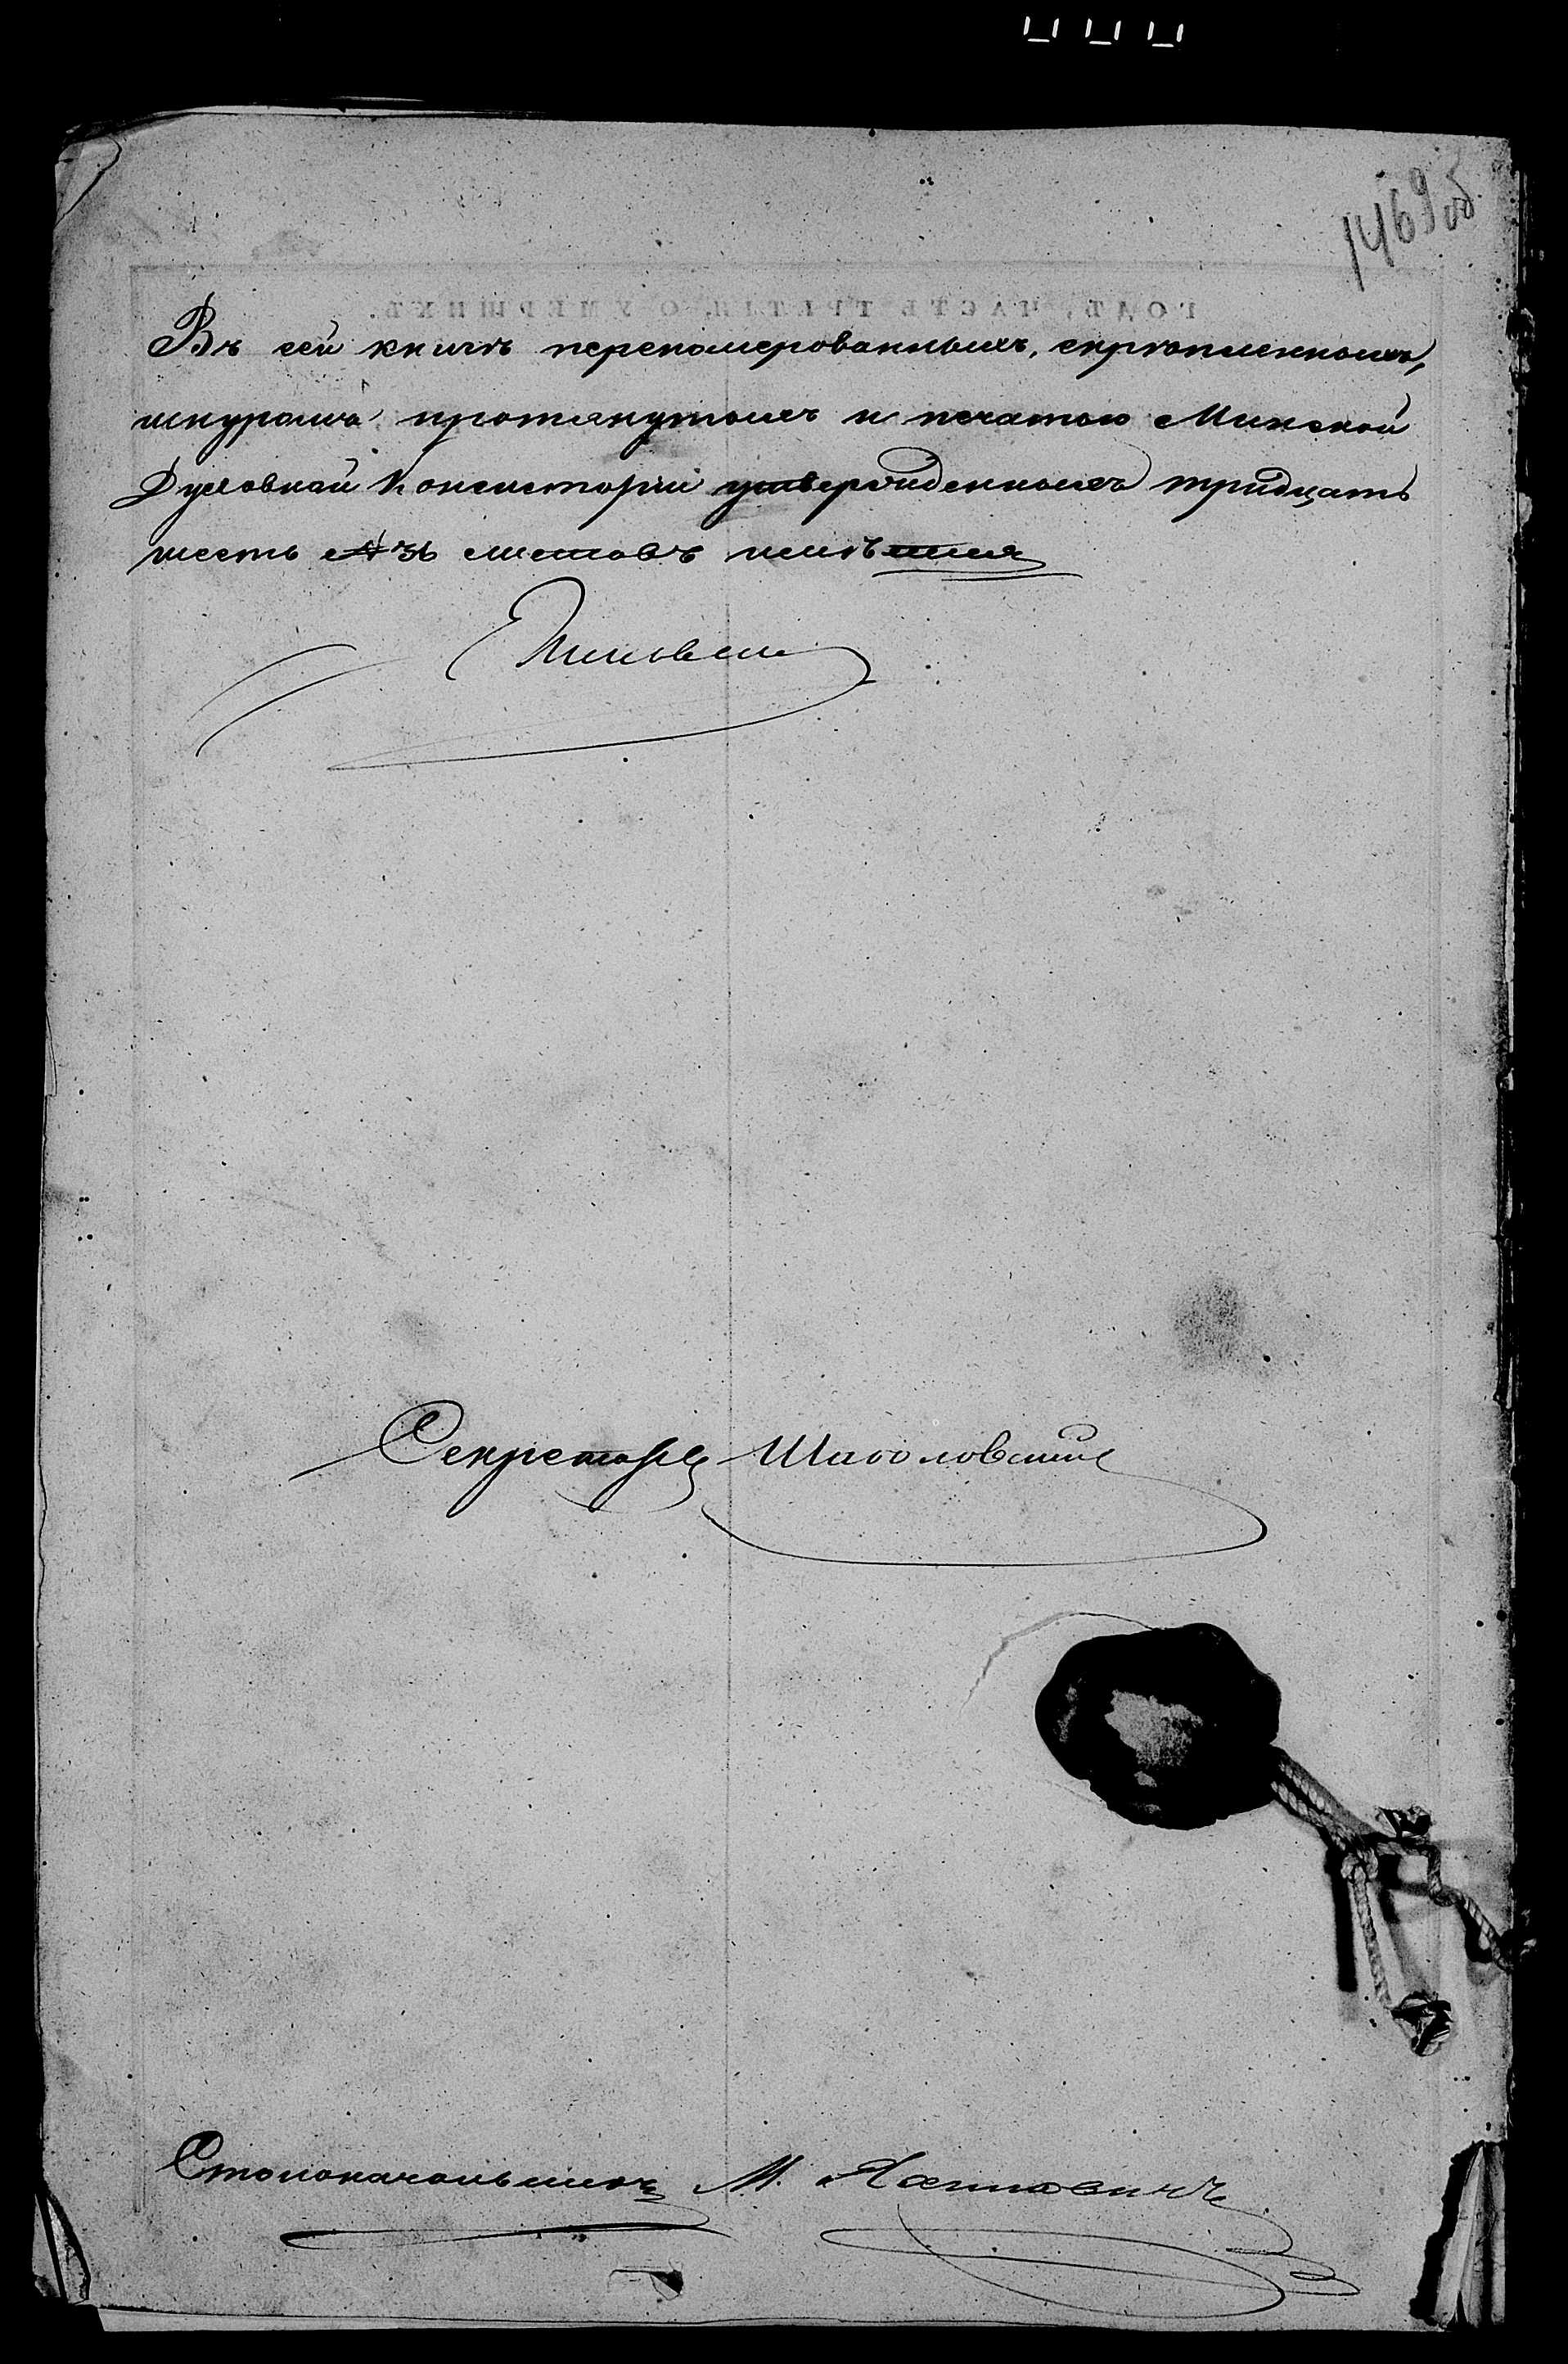 1469об
ГОДЪ, ЧАСТЬ ТРЕТІЯ, О УМЕРШИХЪ.
Въ сей книгѣ переномерованныхъ, скрѣпленныхъ,
шнуромъ протянутыхъ и печатью Минской
Духовной Консисторіи утвержденныхъ тридцать
шесть №36 листовъ
Секретарь
Столоначальникъ М.